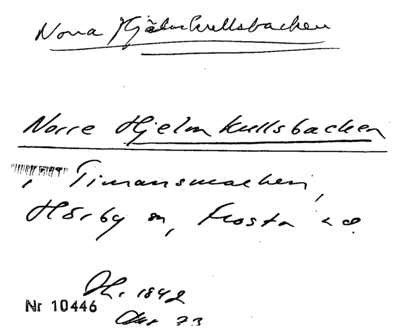 Norra Hjälmkullsbacken
Norre Hjelmkullsbacken
, Timansmarken,
Hörby sn, Frosta hd.
Dh. 1842
Nr 10446